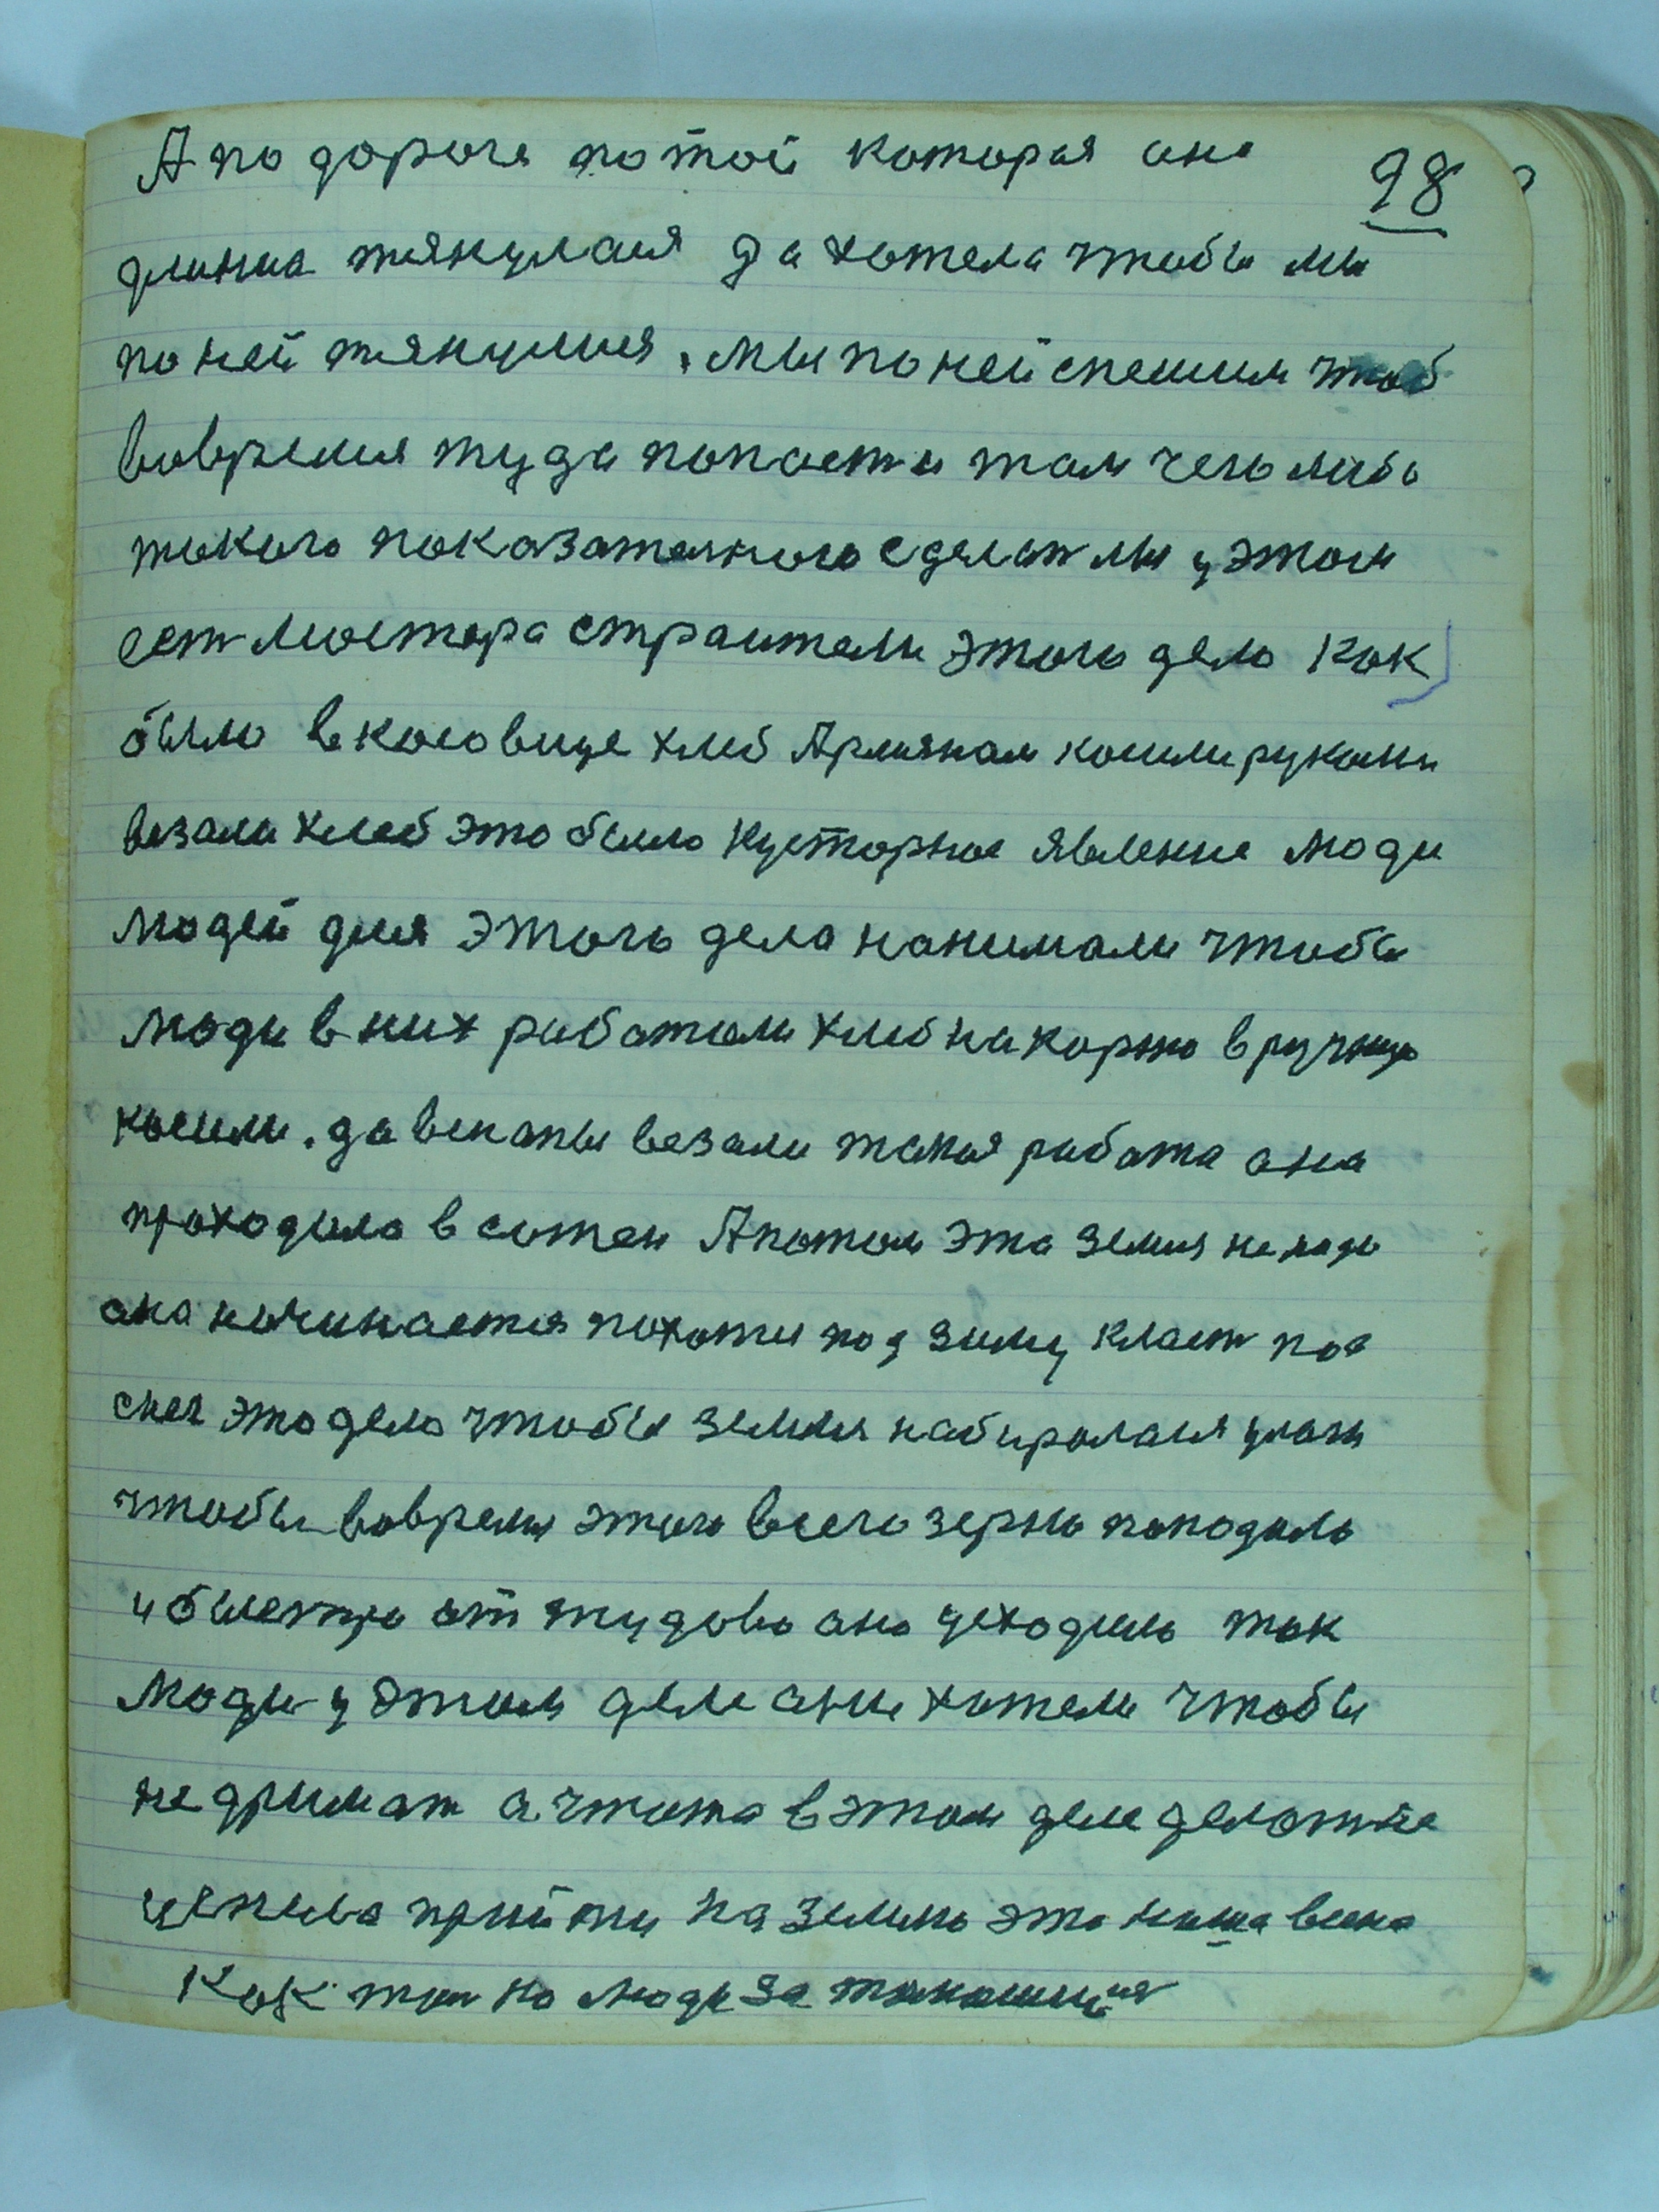 А по дороги по той которая ана 98
длинна тянулася да хотела чтобы мы
по ней тянулися. мы по ней спешим чтоб
вовремя туда попасти там чего либо
такого показательного сделат мы у этом
ест мастера страители этого дело как
было в косовице хлеб Армяном косили руками
везали хлеб это было кусторное явление люди
людей для этого дела нанимали чтобы
люди в них работали хлеб на корню вручную
косили. да в снопы везали такая работа ана
проходила в Апотом эта земля
ана начинается пахоты под зиму класт под
снег это дело чтобы земля набиралася улаги
чтобы вовремя этого всего зерно паподало
и быстро от тудова ано уходило так
люди у этом деле ани хотели чтобы
не дримат а чтото в этом деле делат не
прийти на землю это наша весна
Как толко люди за